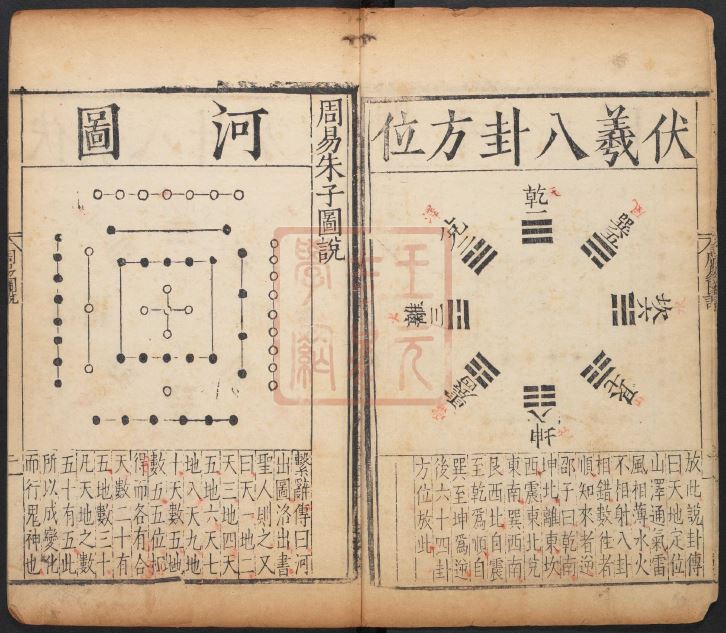 伏羲八卦方位
乾一
兌二
離三
震四
巽五
坎六
艮七
坤八
放此說卦傳
曰天地定位
山澤通氣雷
風相薄水火
不相射八卦
相錯數往者
順知來者逆
邵子曰乾南
坤北離東坎
西震東北兌
東南巽西南
艮西北自震
至乾爲順自
巽至坤爲逆
後六十四卦
方位放此
周易朱子圖說
河圖
繫辭傳曰河
出圖洛出書
聖人則之又
曰天一地二
天三地四天
五地六天七
地八天九地
十天數五地
數五五位相
得而各有合
天數二十有
五地數三十
凡天地之數
五十有五此
所以成變化
而行鬼神也
二